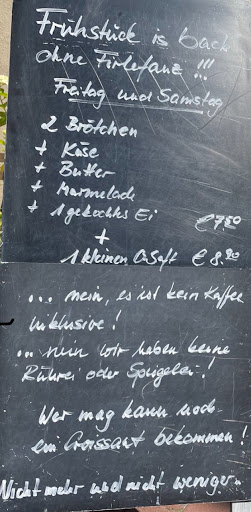 Frühstück is back
ohne Firlefanz !!!
Freitag und Samstag
2 Brötchen
+ Käse
+ Butter
+ Marmelade
+ 1 gekochtes Ei €7.50
+
1 kleinen O-Saft €8.90
... nein, es ist kein Kaffee
inklusive !
... nein wir haben keine
Rührei oder Spiegelei !
Wer mag kann noch
ein Croissant bekommen !
Nicht mehr und nicht weniger.